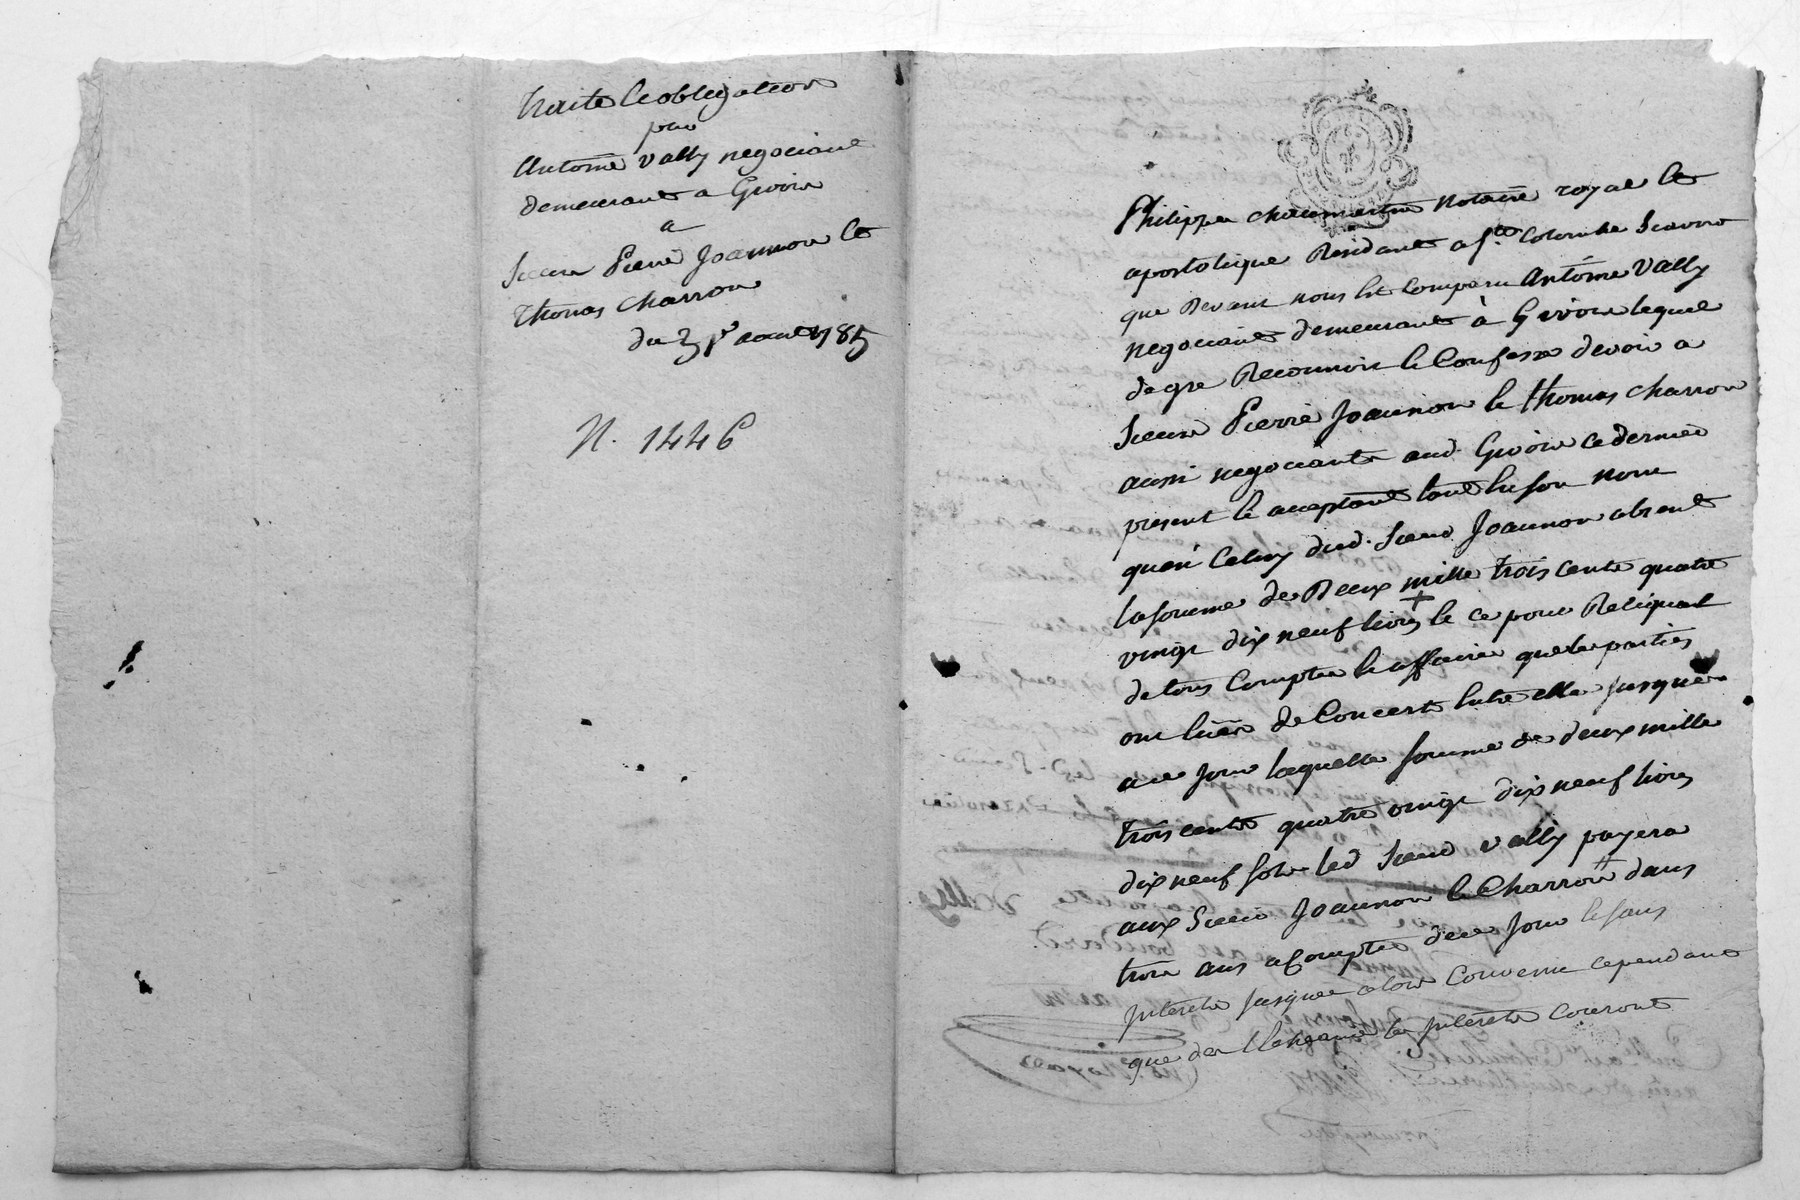 Traité et obligation
par
Antoine Vally negociant
demeurant a Givors
a
Sieurs Pierre Joannon et
Thomas Charron
du 31 aout 1785
N. 1446
Philippe Chaumartin Notaire royal et
apostolique Residant a Ste Colombe scavoir
que Devant nous est comparu Antoine Vally
negociant demeurant à Givors lequel
de gre Reconnoit et Confesse devoir a
Sieurs Pierre Joannon et Thomas Charron
aussi negociants aud. Givors ce dernier
present et acceptant tant en son nom
qu'en celuy dud. Sieur Joannon absent
la somme de Deux mille trois cents quatre
vingt dix neuf livres + et ce pour Reliquat
de tous comptes et affaires que les parties
ont eües de Concert entre elles jusques
a ce jour laquelle somme de deux mille
trois cents quatre vingt dix neuf livres
dix neuf sols led Sieur Vally payera
aux Sieurs Joannon et Charron dans
trois ans a Compter de ce jour et sans
interets jusques alors Convenu cependant
que des l'echeance les interets couront